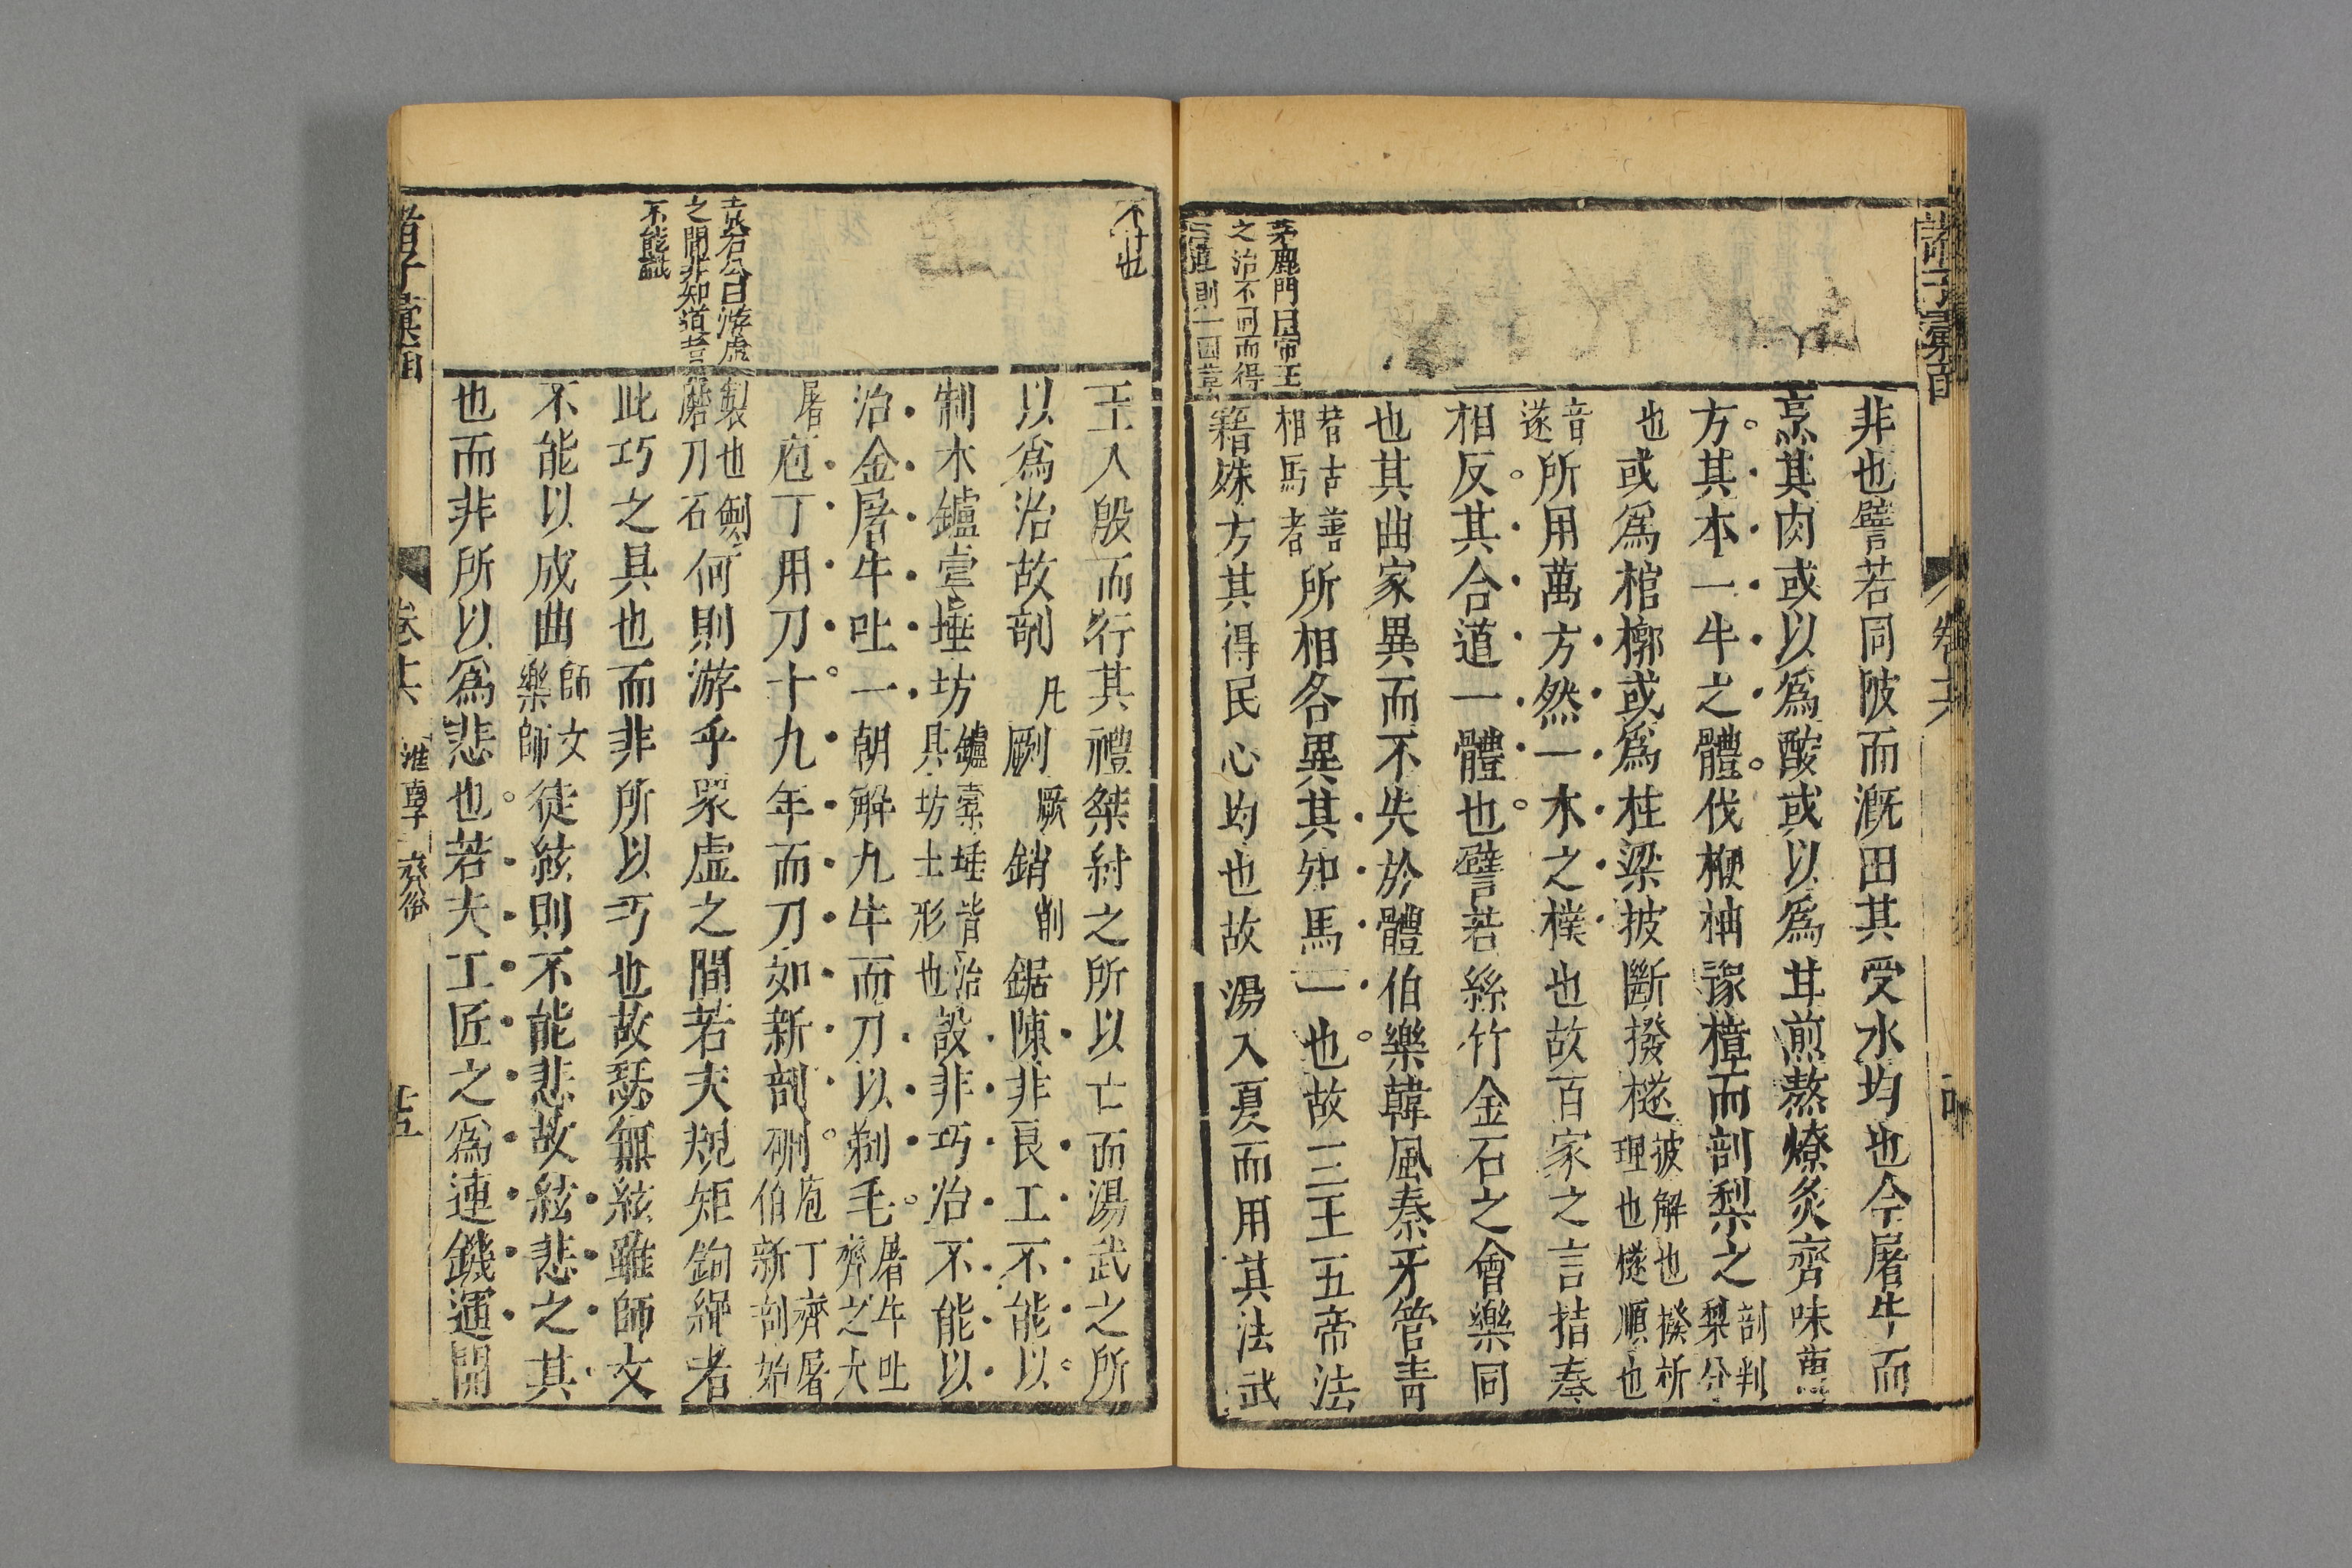 諸子彙函
茅鹿門曰帝王
之治不同而得
則一
非也譬若同陂而溉田其受水均也今屠牛而
烹其肉或以爲酸或以爲甘煎熬燎炙齊味萬
方其本一牛之體伐楩柟豫樟而剖梨之剖判梨分
也或爲棺槨或爲柱梁披斷撥檖披解也撥析理也檖順也
音遂所用萬方然一木之樸也故百家之言拮奏
相反其合道一體也譬若絲竹金石之會樂同
也其曲家異而不失於體伯樂韓風秦牙管青
昔古善相馬者所相各異其知馬一也故三王五帝法
籍殊方其得民心均也故湯入夏而用其法武
不付也
袁石公曰游虛
之間非知道者
不能識
王入殷而行其禮桀紂之所以亡而湯武之所
以爲治故剞几劂厥銷削鋸陳非良工不能以
制木鑪橐埵坊鑪橐埵皆冶具坊土形也設非巧冶不能以
治金屠牛吐一朝解九牛而刀以剃毛屠牛吐齊之大
屠庖丁用刀十九年而刀如新剖硎庖丁齊屠伯新剖始
製也磨刀石何則游乎衆虛之間若夫規矩鉤繩者
此巧之具也而非所以巧也故瑟無絃雖師文
不能以成曲師文樂師徒絃則不能悲故絃悲之其
也而非所以爲悲也若夫工匠之爲連鐖運開
諸子彙函
卷十六
淮南子
齊俗